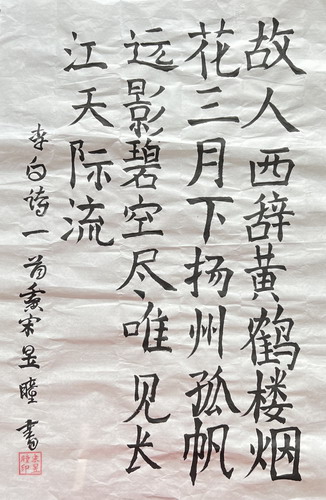 故人西辞黄鹤楼烟
花三月下扬州孤帆
远影碧空尽唯见长
江天际流
李白诗一首 宋昱瞳书